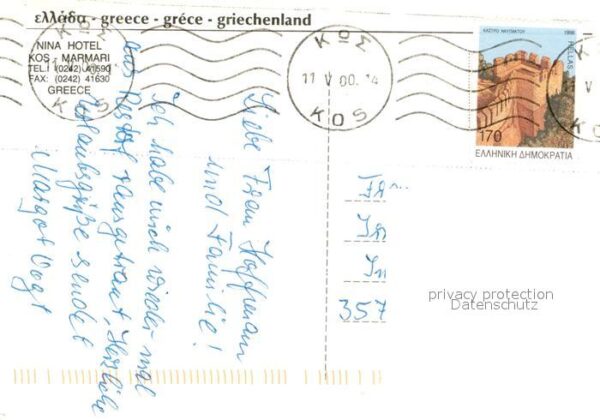 ελλάδα - greece - gréce - griechenland
NINA HOTEL
KOS - MARMARI
TEL: (0242) 41590
FAX: (0242) 41630
GREECE
ΚΩΣ
KOS
ΚΩΣ
11 V 00. 14
KOS
ΚΑΣΤΡΟ ΝΑΥΠΑΚΤΟΥ
1998
HELLAS
170
ΕΛΛΗΝΙΚΗ ΔΗΜΟΚΡΑΤΙΑ
Κ
V
KOS
Liebe Frau Hoffmann
und Familie!
Ich habe mich wieder mal
rausgetraut, Herzliche
Urlaubsgrüße sendet
Margot Vogt
357
privacy protection
Datenschutz